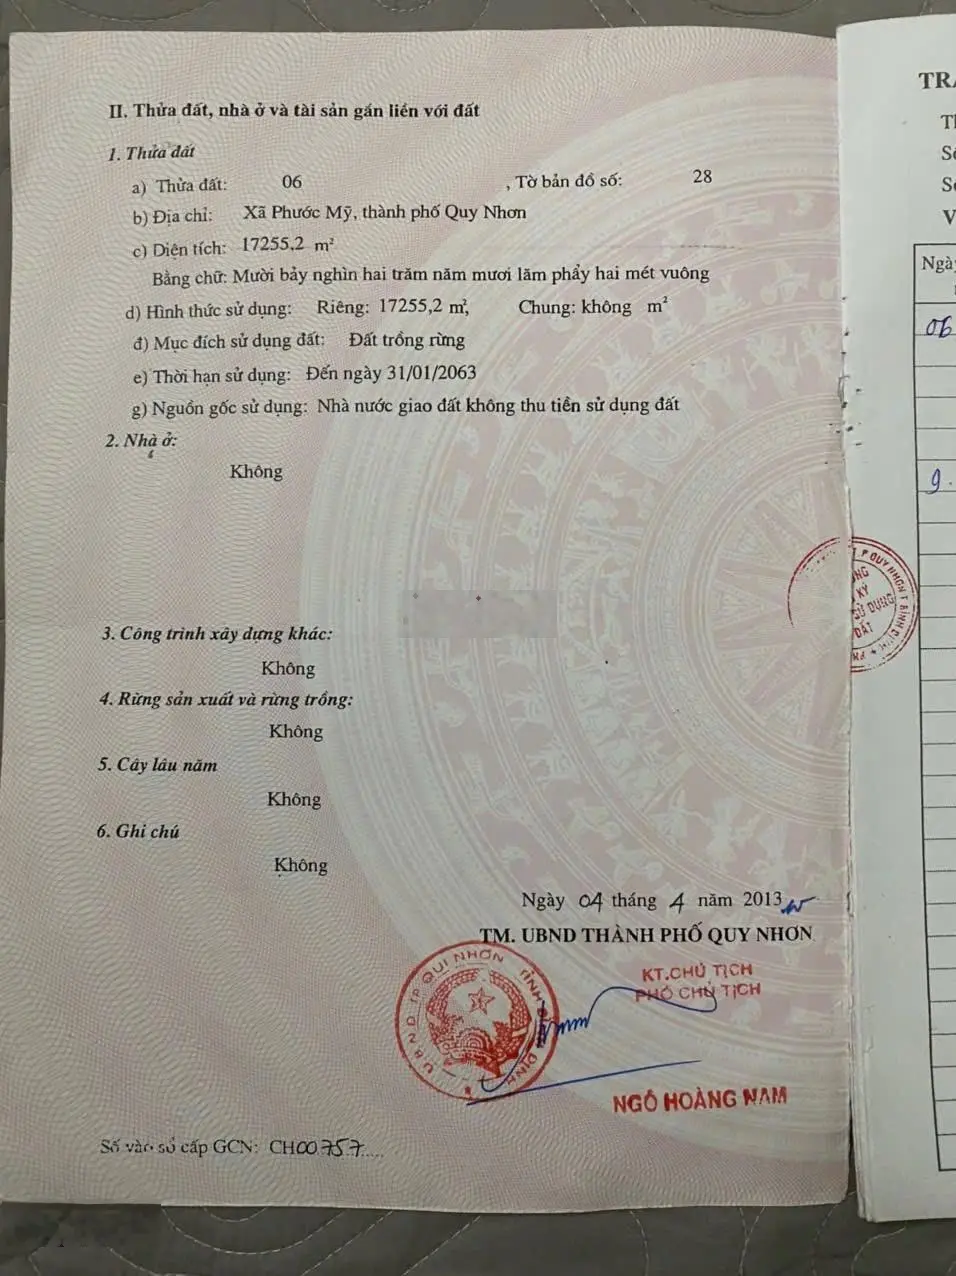 II. Thửa đất, nhà ở và tài sản gắn liền với đất
1. Thửa đất
a) Thửa đất: 06 , Tờ bản đồ số: 28
b) Địa chỉ: Xã Phước Mỹ, thành phố Quy Nhơn
c) Diện tích: 17255,2 m²
Bằng chữ: Mười bảy nghìn hai trăm năm mươi lăm phẩy hai mét vuông
d) Hình thức sử dụng: Riêng: 17255,2 m², Chung: không m²
đ) Mục đích sử dụng đất: Đất trồng rừng
e) Thời hạn sử dụng: Đến ngày 31/01/2063
g) Nguồn gốc sử dụng: Nhà nước giao đất không thu tiền sử dụng đất
2. Nhà ở:
Không
3. Công trình xây dựng khác:
Không
4. Rừng sản xuất và rừng trồng:
Không
5. Cây lâu năm
Không
6. Ghi chú
Không
Ngày 04 tháng 4 năm 2013
TM. UBND THÀNH PHỐ QUY NHƠN
KT.CHỦ TỊCH
PHÓ CHỦ TỊCH
UBND TP QUI NHƠN TỈNH BÌNH ĐỊNH
NGÔ HOÀNG NAM
Số vào sổ cấp GCN: CH00757.....
Ngày
06
9.
KÝ
SỬ DỤNG
ĐẤT